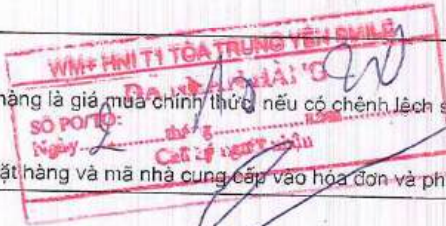 WM+ HNI T1 TÒA TRUNG YÊN SMILE
ĐÃ
hàng là giá mua chính thức nếu có chênh lệch s
SỐ PO/TO:
Ngày 2 tháng 10 năm 20
Chữ ký người nhận
ặt hàng và mã nhà cung cấp vào hóa đơn và ph